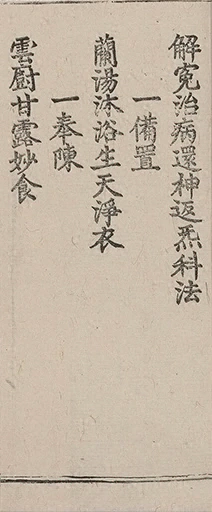 解寃治病還神返炁科法
一備置
蘭湯沐浴生天淨衣
一奉陳
雲厨甘露妙食